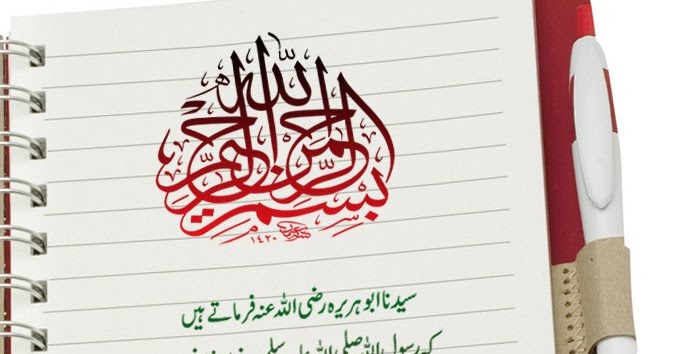 بسم الله الرحمن الرحيم
١٤٢٠
سیدنا ابو ہریرہ رضی اللہ عنہ فرماتے ہیں
کہ رسول اللہ صلی اللہ علیہ وسلم نے